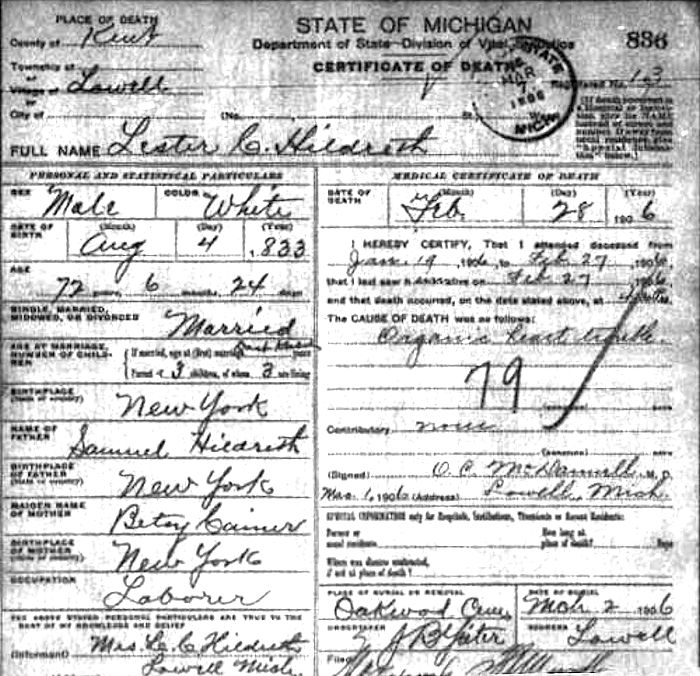 PLACE OF DEATH
STATE OF MICHIGAN
County of Kent
Department of State—Division of Vital Statistics
836
Township of
CERTIFICATE OF DEATH
or
Village of Lowell
Registered No. 123
or
City of (No. St.,
STATE MAR 7 1906 MICH.
(If death occurred in a Hospital or Institution, give its NAME instead of street and number. If away from usual residence give "Special Information" below.)
FULL NAME Lester C. Hildreth
PERSONAL AND STATISTICAL PARTICULARS
SEX Male COLOR White
DATE OF BIRTH (Month) Aug (Day) 4 (Year) 1833
AGE 72 years, 6 months, 24 days
SINGLE, MARRIED, WIDOWED, OR DIVORCED Married
AGE AT MARRIAGE, NUMBER OF CHILDREN
If married, age at (first) marriage years
Parent of 3 children, of whom 3 are living
BIRTHPLACE (State or country) New York
NAME OF FATHER Samuel Hildreth
BIRTHPLACE OF FATHER (State or country) New York
MAIDEN NAME OF MOTHER Betsy
BIRTHPLACE OF MOTHER (State or country) New York
OCCUPATION Laborer
THE ABOVE STATED PERSONAL PARTICULARS ARE TRUE TO THE BEST OF MY KNOWLEDGE AND BELIEF
(Informant) Mrs. L. C. Hildreth
Lowell Mich
MEDICAL CERTIFICATE OF DEATH
DATE OF DEATH (Month) Feb. (Day) 28 (Year) 1906
I HEREBY CERTIFY, That I attended deceased from
Jan 19, 1906, to Feb 27, 1906
that I last saw h alive on Feb 27 1906
and that death occurred, on the date stated above, at
The CAUSE OF DEATH was as follows:
Organic heart trouble
79
(DURATION) DAYS
Contributory none
(DURATION) DAYS
(Signed) O. C. McDannell M. D.
Mar 1, 1906 (Address) Lowell, Mich
SPECIAL INFORMATION only for Hospitals, Institutions, Transients or Recent Residents:
Former or usual residence
How long at place of death? Days
Where was disease contracted, if not at place of death?
PLACE OF BURIAL OR REMOVAL Oakwood Cem.
DATE OF BURIAL Mch 2 1906
UNDERTAKER J B Yeiter
ADDRESS Lowell
Filed